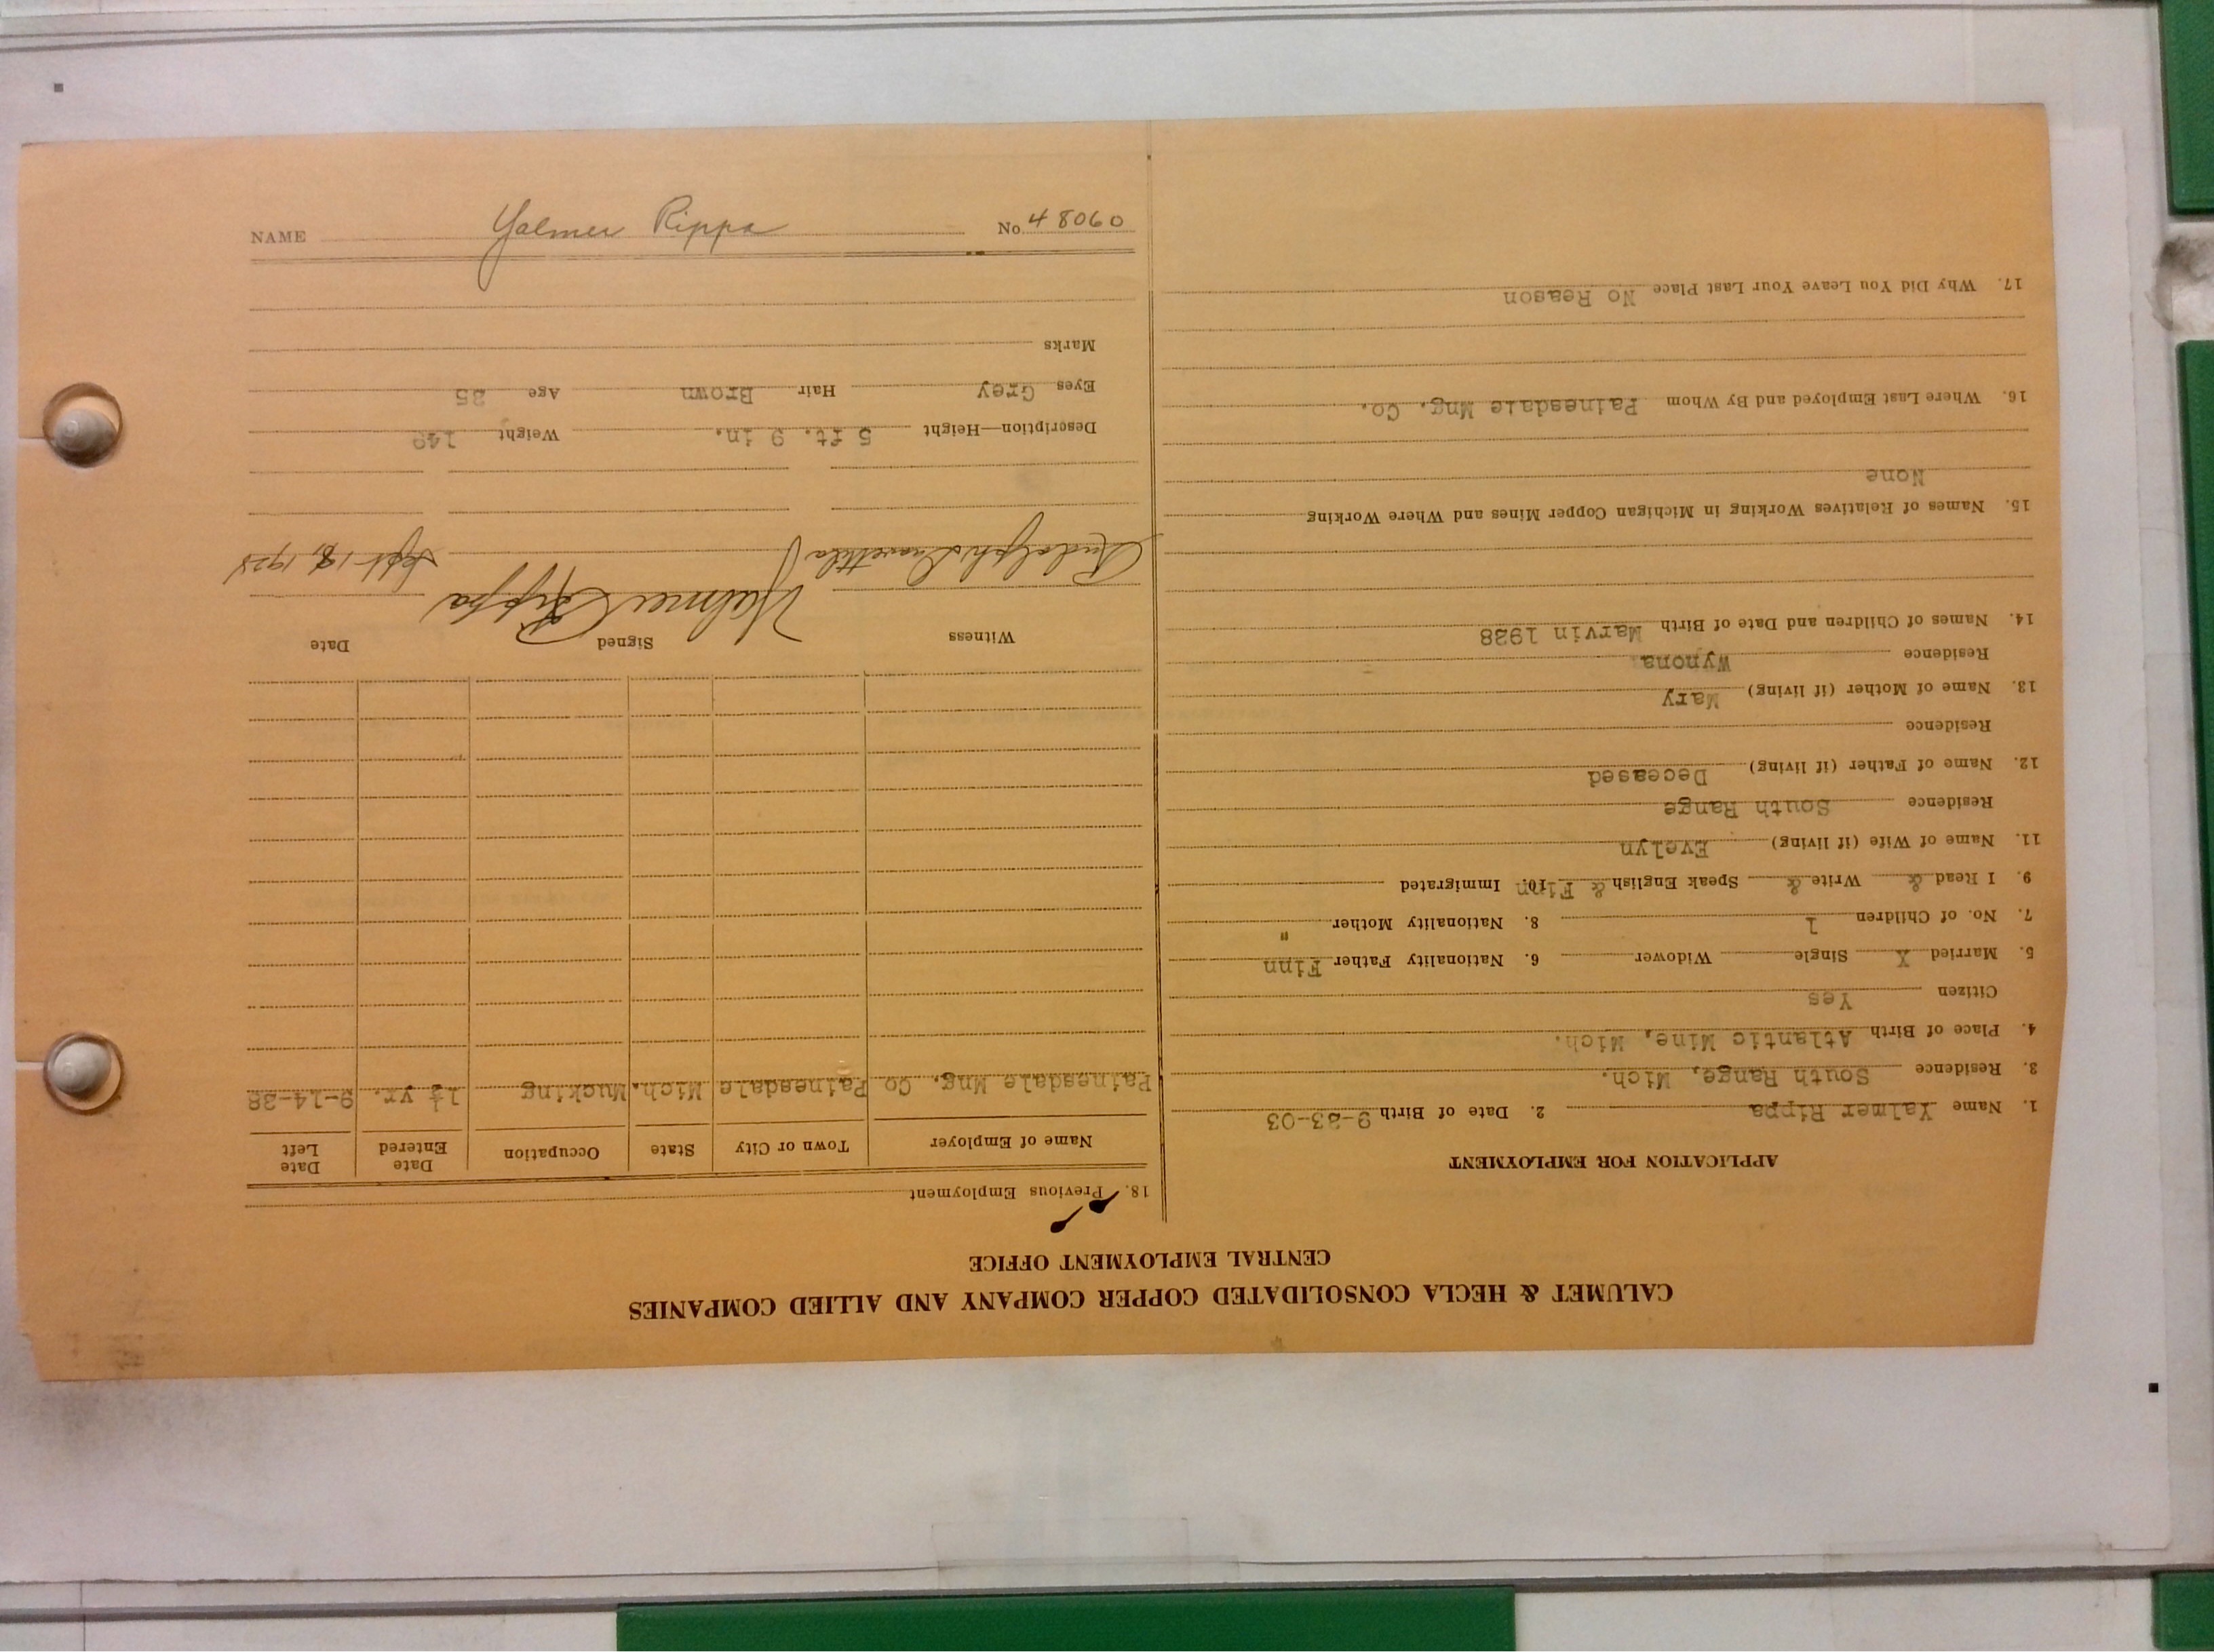 CALUMET & HECLA CONSOLIDATED COPPER COMPANY AND ALLIED COMPANIES
CENTRAL EMPLOYMENT OFFICE
APPLICATION FOR EMPLOYMENT
1. Name Yalmer Rippa 2. Date of Birth 9-23-03
3. Residence South Range, Mich.
4. Place of Birth Atlantic Mine, Mich.
Citizen Yes
5. Married X Single Widower 6. Nationality Father Finn
7. No. of Children 1 8. Nationality Mother "
9. I Read & Write & Speak English & Finn 10. Immigrated
11. Name of Wife (if living) Evelyn
Residence South Range
12. Name of Father (if living) Deceased
Residence
13. Name of Mother (if living) Mary
Residence Wynona
14. Names of Children and Date of Birth Marvin 1928
15. Names of Relatives Working in Michigan Copper Mines and Where Working
None
16. Where Last Employed and By Whom Painesdale Mng. Co.
17. Why Did You Leave Your Last Place No Reason
18. Previous Employment
Name of Employer Town or City State Occupation Date Entered Date Left
Painesdale Mng. Co Painesdale Mich. Mucking 1½ yr. 9-14-28
Witness Signed Date
Rudolph Yalmer Rippa Sept 18, 1928
Description—Height 5 ft. 9 in. Weight
Eyes Grey Hair Brown Age 25
Marks
NAME Yalmer Rippa No. 48060